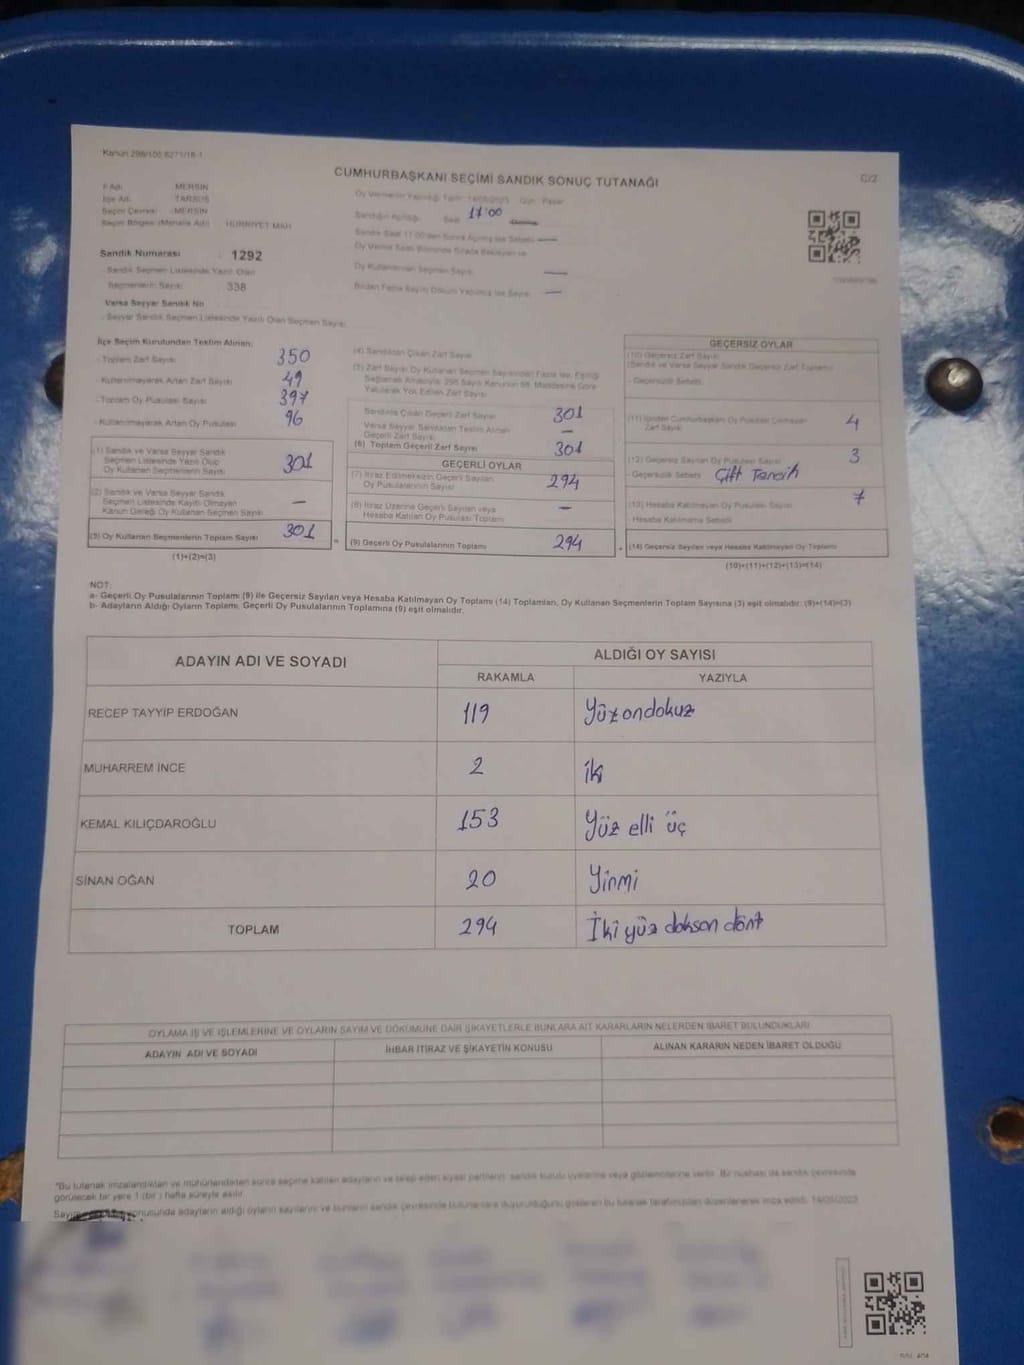 Kanun 298/105,6271/18-1
CUMHURBAŞKANI SEÇİMİ SANDIK SONUÇ TUTANAĞI
C/2
İl Adı : MERSİN
İlçe Adı : TARSUS
Seçim Çevresi : MERSİN
Seçim Bölgesi (Mahalle Adı) : HÜRRİYET MAH
Sandık Numarası : 1292
Sandık Seçmen Listesinde Yazılı Olan
Seçmenlerin Sayısı : 338
Varsa Seyyar Sandık No
- Seyyar Sandık Seçmen Listesinde Yazılı Olan Seçmen Sayısı:
Oy Vermenin Yapıldığı Tarih: 14/05/2023 Gün: Pazar
Sandığın Açıldığı Saat 17:00
Sandık Saat 17:00'den Sonra Açılmış İse Sebebi —
Oy Verme Saati Bitiminde Sırada Bekleyen ve
Oy Kullandırılan Seçmen Sayısı —
Birden Fazla Sayım Döküm Yapılmış İse Sayısı —
İlçe Seçim Kurulundan Teslim Alınan;
- Toplam Zarf Sayısı 350
- Kullanılmayarak Artan Zarf Sayısı 49
- Toplam Oy Pusulası Sayısı 397
- Kullanılmayarak Artan Oy Pusulası 96
(1) Sandık ve Varsa Seyyar Sandık
Seçmen Listesinde Yazılı Olup
Oy Kullanan Seçmenlerin Sayısı 301
(2) Sandık ve Varsa Seyyar Sandık
Seçmen Listesinde Kayıtlı Olmayan
Kanun Gereği Oy Kullanan Seçmen Sayısı —
(3) Oy Kullanan Seçmenlerin Toplam Sayısı 301
(1)+(2)=(3)
(4) Sandıktan Çıkan Zarf Sayısı
(5) Zarf Sayısı Oy Kullanan Seçmen Sayısından Fazla İse, Eşitliği
Sağlamak Amacıyla, 298 Sayılı Kanunun 98. Maddesine Göre
Yakılarak Yok Edilen Zarf Sayısı
Sandıkta Çıkan Geçerli Zarf Sayısı 301
Varsa Seyyar Sandıktan Teslim Alınan
Geçerli Zarf Sayısı —
(6) Toplam Geçerli Zarf Sayısı 301
GEÇERLİ OYLAR
(7) İtiraz Edilmeksizin Geçerli Sayılan
Oy Pusulalarının Sayısı 294
(8) İtiraz Üzerine Geçerli Sayılan veya
Hesaba Katılan Oy Pusulası Toplamı —
(9) Geçerli Oy Pusulalarının Toplamı 294
GEÇERSİZ OYLAR
(10) Geçersiz Zarf Sayısı
(Sandık ve Varsa Seyyar Sandık Geçersiz Zarf Toplamı)
- Geçersizlik Sebebi
(11) İçinden Cumhurbaşkanı Oy Pusulası Çıkmayan
Zarf Sayısı 4
(12) Geçersiz Sayılan Oy Pusulası Sayısı 3
- Geçersizlik Sebebi Çift Tercih
(13) Hesaba Katılmayan Oy Pusulası Sayısı 7
Hesaba Katılmama Sebebi
(14) Geçersiz Sayılan veya Hesaba Katılmayan Oy Toplamı
(10)+(11)+(12)+(13)=(14)
NOT:
a- Geçerli Oy Pusulalarının Toplamı (9) ile Geçersiz Sayılan veya Hesaba Katılmayan Oy Toplamı (14) Toplamları, Oy Kullanan Seçmenlerin Toplam Sayısına (3) eşit olmalıdır. (9)+(14)=(3)
b- Adayların Aldığı Oyların Toplamı, Geçerli Oy Pusulalarının Toplamına (9) eşit olmalıdır.
ADAYIN ADI VE SOYADI
ALDIĞI OY SAYISI
RAKAMLA YAZIYLA
RECEP TAYYİP ERDOĞAN 119 Yüzondokuz
MUHARREM İNCE 2 iki
KEMAL KILIÇDAROĞLU 153 Yüz elli üç
SİNAN OĞAN 20 Yirmi
TOPLAM 294 İki yüz doksan dört
OYLAMA İŞ VE İŞLEMLERİNE VE OYLARIN SAYIM VE DÖKÜMÜNE DAİR ŞİKAYETLERLE BUNLARA AİT KARARLARIN NELERDEN İBARET BULUNDUKLARI
ADAYIN ADI VE SOYADI İHBAR İTİRAZ VE ŞİKAYETİN KONUSU ALINAN KARARIN NEDEN İBARET OLDUĞU
*Bu tutanak imzalandıktan ve mühürlendikten sonra seçime katılan adayların ve talep eden siyasi partilerin, sandık kurulu üyelerine veya gözlemcilerine verilir. Bir nüshası da sandık çevresinde
görülecek bir yere 1 (bir ) hafta süreyle asılır.
sonucunda adayların aldığı oyların sayılarını ve bunların sandık çevresinde bulunanlara duyurulduğunu gösteren bu tutanak tarafımızdan düzenlenerek imza edildi. 14/05/2023